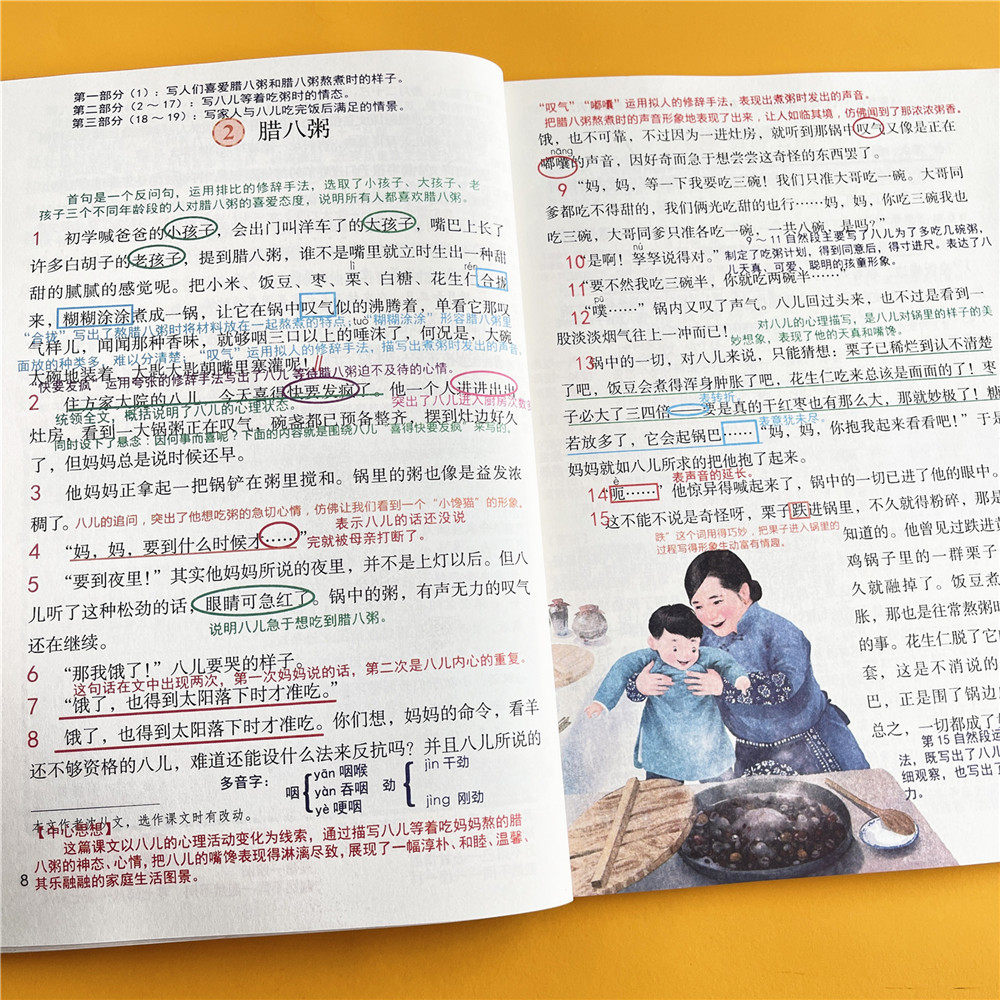 第一部分（1）：写人们喜爱腊八粥和腊八粥熬煮时的样子。
第二部分（2～17）：写八儿等着吃粥时的情态。
第三部分（18～19）：写家人与八儿吃完饭后满足的情景。
2 腊八粥
首句是一个反问句，运用排比的修辞手法，选取了小孩子、大孩子、老
孩子三个不同年龄段的人对腊八粥的喜爱态度，说明所有人都喜欢腊八粥。
1 初学喊爸爸的小孩子，会出门叫洋车了的大孩子，嘴巴上长了
许多白胡子的老孩子，提到腊八粥，谁不是嘴里就立时生出一种甜
lì rén
甜的腻腻的感觉呢。把小米、饭豆、枣、栗、白糖、花生仁合拢
来，糊糊涂涂煮成一锅，让它在锅中叹气似的沸腾着，单看它那叹
“合拢”写出了熬腊八粥时将材料放在一起熬煮的特点；“糊糊涂涂”形容腊八粥里
tuò
气样儿，闻闻那种香味，就够咽三口以上的唾沫了，何况是，大碗
面放的种类多，难以分清楚；“叹气”运用拟人的修辞手法，描写出煮粥时发出的声音。
大碗地装着，大匙大匙朝嘴里塞灌呢！
“快要发疯”运用夸张的修辞手法写出了八儿等待腊八粥急迫不及待的心情。
2 住方家大院的八儿，今天喜得快要发疯了。他一个人进进出出
统领全文，概括说明了八儿的心理状态。
突出了八儿进入厨房次数多
灶房，看到一大锅粥正在叹气，碗盏都已预备整齐，摆到灶边好久
同时设下了悬念：因何事而喜呢？下面的内容就是围绕八儿“喜得快要发疯”来写的。
了，但妈妈总是说时候还早。
3 他妈妈正拿起一把锅铲在粥里搅和。锅里的粥也像是益发浓
稠了。
八儿的追问，突出了他想吃粥的急切心情，仿佛让我们看到一个“小馋猫”的形象。
4 “妈，妈，要到什么时候才……”
表示八儿的话还没说
完就被母亲打断了。
5 “要到夜里！”其实他妈妈所说的夜里，并不是上灯以后。但八
儿听了这种松劲的话，眼睛可急红了。锅中的粥，有声无力的叹气
还在继续。
说明八儿急于想吃到腊八粥。
6 “那我饿了！”八儿要哭的样子。
这句话在文中出现两次，第一次妈妈说的话，第二次是八儿内心的重复。
7 “饿了，也得到太阳落下时才准吃。”
8 饿了，也得到太阳落下时才准吃。你们想，妈妈的命令，看羊
还不够资格的八儿，难道还能设什么法来反抗吗？并且八儿所说的
多音字：
咽 yān 咽喉 yàn 吞咽 yè 哽咽
劲 jìn 干劲 jìng 刚劲
本文作者沈从文，选作课文时有改动。
【中心思想】
这篇课文以八儿的心理活动变化为线索，通过描写八儿等着吃妈妈熬的腊
八粥的神态、心情，把八儿的嘴馋表现得淋漓尽致，展现了一幅淳朴、和睦、温馨、
其乐融融的家庭生活图景。
8
“叹气”“嘟囔”运用拟人的修辞手法，表现出煮粥时发出的声音。
把腊八粥熬煮时的声音形象地表现了出来，让人如临其境，仿佛闻到了那浓浓粥香。
饿，也不可靠，不过因为一进灶房，就听到那锅中叹气又像是正在
nāng
嘟囔的声音，因好奇而急于想尝尝这奇怪的东西罢了。
9 “妈，妈，等一下我要吃三碗！我们只准大哥吃一碗。大哥同
爹都吃不得甜的，我们俩光吃甜的也行……妈，妈，你吃三碗我也
吃三碗，大哥同爹只准各吃一碗，一共八碗，是吗？”
nú
9～11自然段主要写了八儿为了多吃几碗粥，
10 “是啊！孥孥说得对。”
制定了吃粥计划，得到同意后，得寸进尺。表达了八
儿天真，可爱、聪明的孩童形象。
11 “要不然我吃三碗半，你就吃两碗半……”
pū
12 “噗……”锅内又叹了声气。八儿回过头来，也不过是看到一
股淡淡烟气往上一冲而已！
对八儿的心理描写，是八儿对锅里的样子的美
妙想象，表现了他的天真和嘴馋。
13 锅中的一切，对八儿来说，只能猜想：栗子已稀烂到认不清楚
了吧，饭豆会煮得浑身肿胀了吧，花生仁吃来总该是面面的了！枣
表转折。
子必大了三四倍——要是真的干红枣也有那么大，那就妙极了！糖
表意犹未尽。
若放多了，它会起锅巴……“妈，妈，你抱我起来看看吧！”于是
妈妈就如八儿所求的把他抱了起来。
表声音的延长。
è
14 “呃……”他惊异得喊起来了，锅中的一切已进了他的眼中。
15 这不能不说是奇怪呀，栗子跌进锅里，不久就得粉碎，那是
“跌”这个词用得巧妙，把果子进入锅里的
过程写得形象生动富有情趣。
知道的。他曾见过跌进黄
鸡锅子里的一群栗子
久就融掉了。饭豆煮
胀，那也是往常熬粥时
的事。花生仁脱了它
套，这是不消说的
巴，正是围了锅边
总之，一切都成了
第15自然段运
法，既写出了八儿
细观察，也写出了
力。